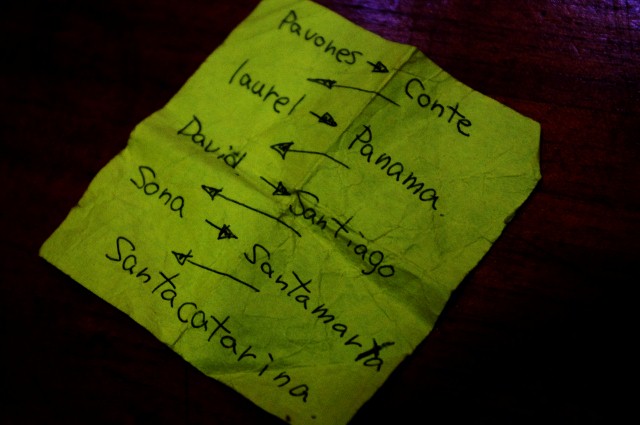 Pavones → Conte
← laurel → Panama.
← David → Santiago
← Sona → Santamarta
← Santacatarina.